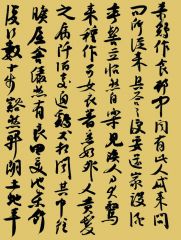 復行數十步豁然開朗土地平
曠屋舍儼然有良田美池桑竹
之屬阡陌交通雞犬相聞其中往
來種作男女衣著悉如外人黃髮
垂髫並怡然自樂見漁人乃大驚
問所從來具答之便要還家設酒
殺雞作食邨中聞有此人咸來問